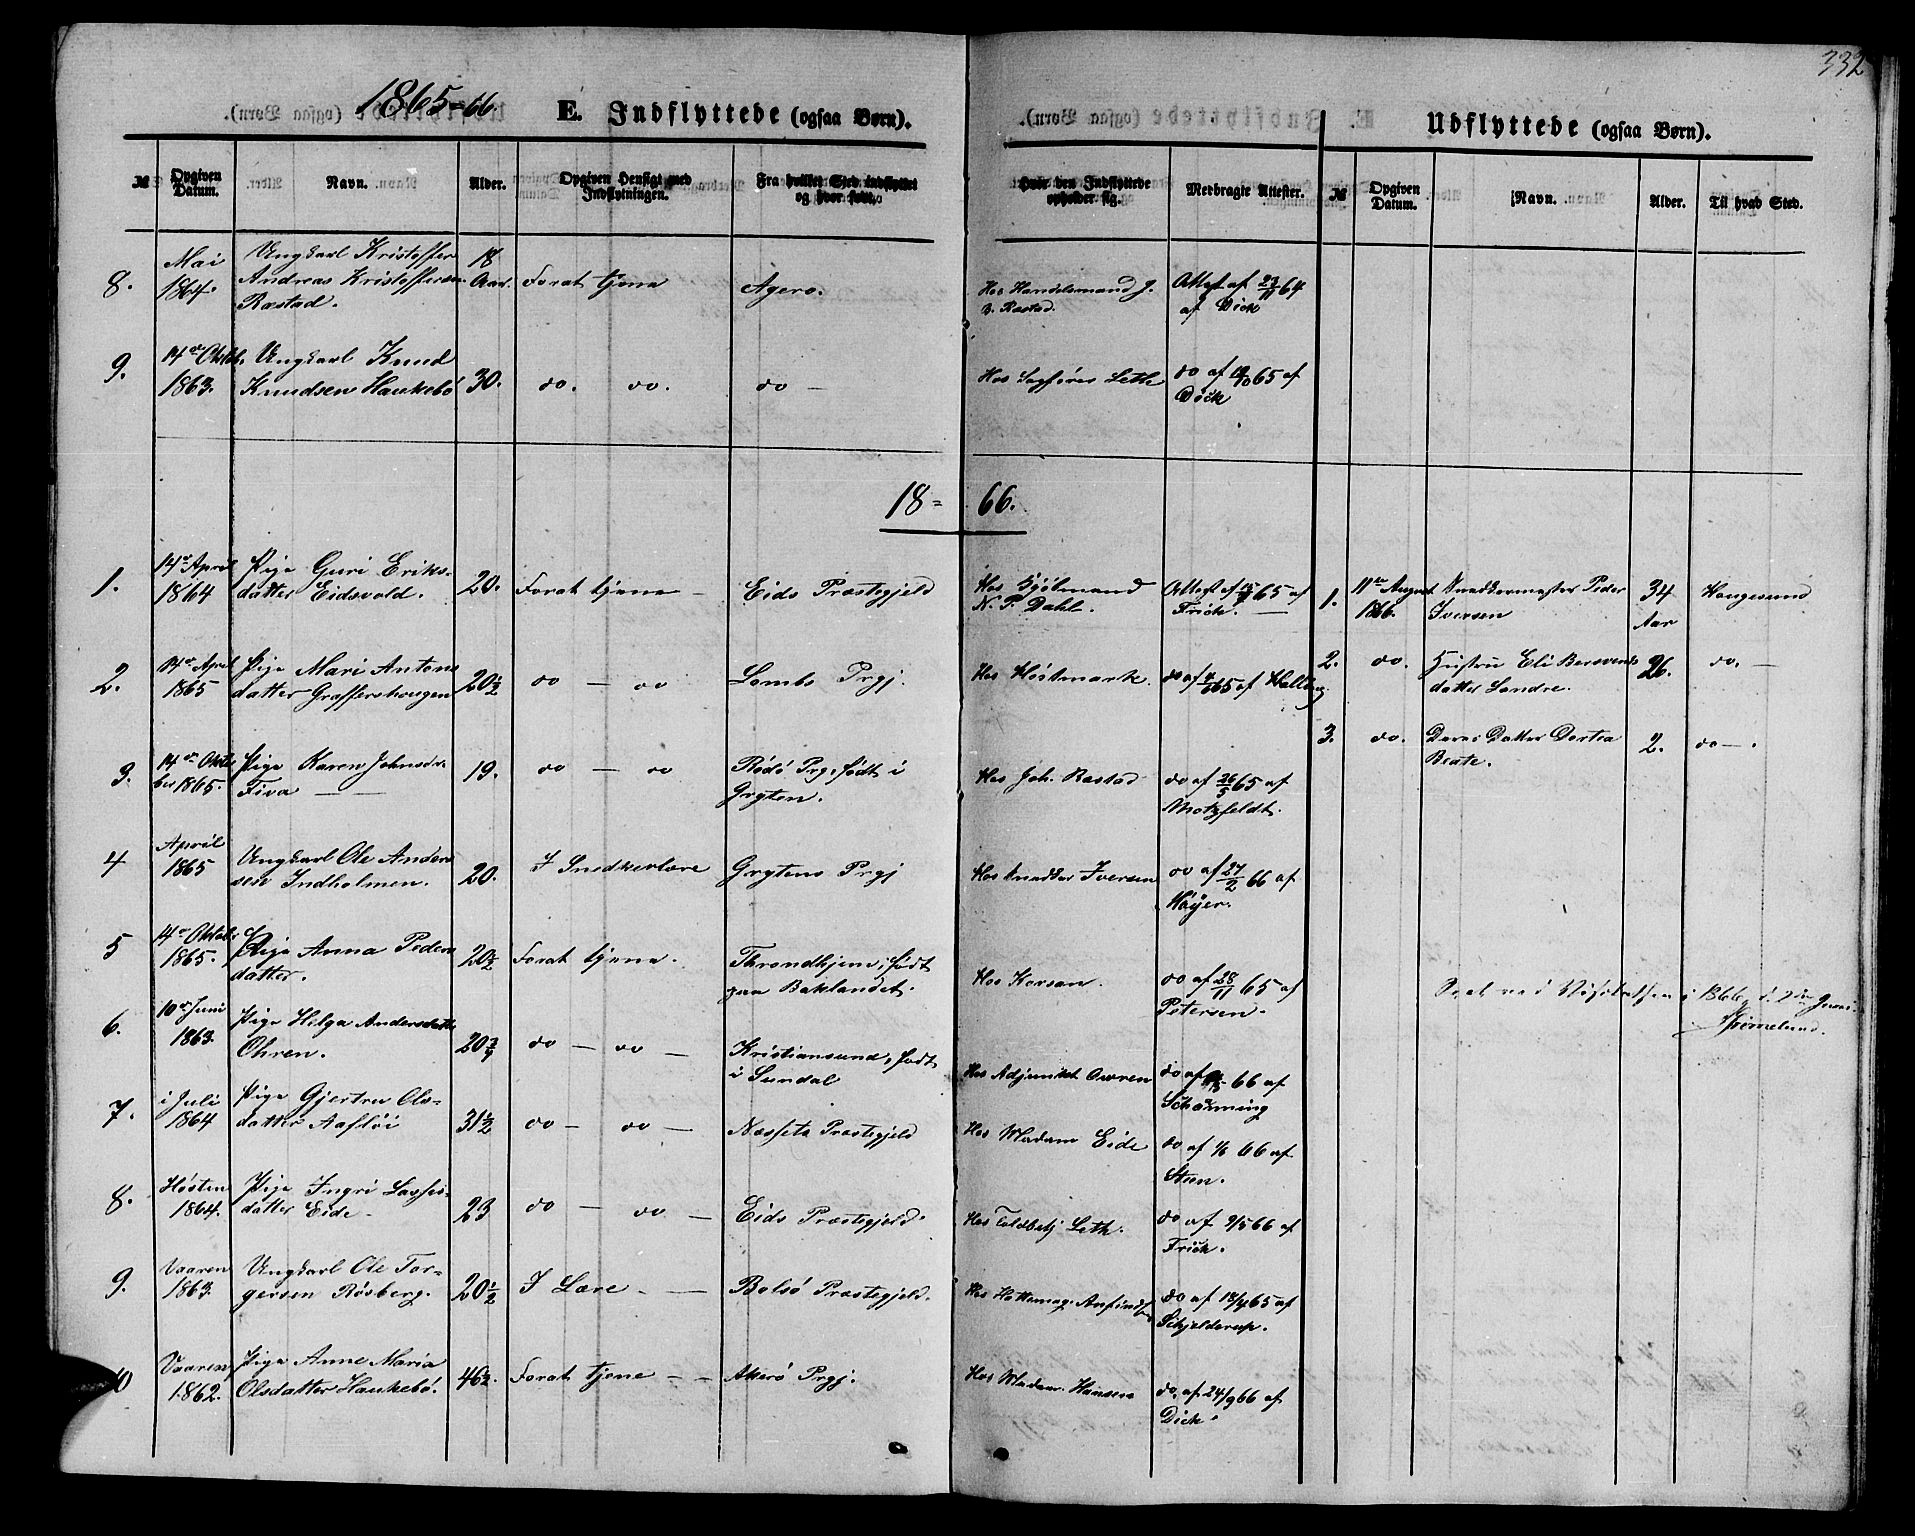 332
1865-66.
E. Indflyttede (ogsaa Børn).
Udflyttede (ogsaa Børn).
№
Opgiven Datum.
Navn.
Alder.
Opgiven Hensigt med Indflytningen.
Fra hvilket Sted indflyttet og hvor født.
Hvor den Indflyttede opholder sig.
Medbragte Attester.
№
Opgiven Datum.
Navn.
Alder.
Til hvad Sted.
8. Mai 1864. Ungkarl Kristoffer Andreas Kristoffersen Rastad. 18 Aar. Forat tjene Agerø. Hos Handelsmand J. B. Rastad. Attest af 23/11 64 af Dick
9. 14de Oktob. 1863. Ungkarl Knud Knudsen Haukebø 30. do. do. do — Hos Sagfører Leth do af /10 65 af Dick
18= 66.
1. 14de April 1864 Pige Guri Eriksdatter Eidsvold. 20. Forat tjene — Eids Præstegjeld Hos N. P. Dahl. Attest af 65 af Frick. —
2. 14de April 1865 Pige Mari Antonsdatter Graffershougen 20½ do — do Lombs Prgj. Hos Høstmark. do af 4/6 65 af Halling
3. 14de Oktober 1865. Pige Karen Johnsdr. Fiva — 19. do — do Rødø Prg., født i Grytten. Hos Joh. Rastad do af 26/5 65 af Motzfeldt.
4 April 1865 Ungkarl Ole Andersen Indholmen. 20. I Snedkerlære Gryttens Prgj Hos Snedker Iversen do af 27/2 66 af Høyer.
5 14de Oktob. 1865. Pige Anna Pedersdatter. 20½ Forat tjene. Throndhjem, født paa Baklandet. Hos Korsan. do af 28/11 65 af Petersen.
6. 10de Juni 1863. Pige Helga Andersdatter Ohren. 20¾ do — do — Kristiansund, født i Sundal Hos Adjunkt Owren do af 66 af Scharning
7. i Juli 1864 Pige Gjertru Olsdatter Aafløi 31½ do — do — Næssets Præstegjeld Hos Madam Eide do af 1/6 66 af Steen.
8. Høsten 1864. Pige Ingri Lassesdatter Eide — 23 do — do — Eids Præstegjeld. Hos Toldbetj Leth. do af 9/5 66 af Frick.
9. Vaaren 1863. Ungkarl Ole Torgersen Røsberg. 20½ I Lære — — Bolsø Præstegjeld. Hos Hattemag. Anfindsen do af 18/4 65 af Schjelderup.
10 Vaaren 1862. Pige Anne Maria Olsdatter Haukebø. 46½. Forat tjene — — Akerø Prgj. Hos Madam Hansen do. af 24/9 66 af Dick.
1. 11te August 1866. Snedkermester Peder Iversen 34 Aar Haugesund
2. do. Hustru Eli Bersvendsdatter Landre. 26. do. —
3. do. Deres Datter Dortea Beate. 2. do —.
Seet ved Visitatsen i 1866, d. 2den Juni.